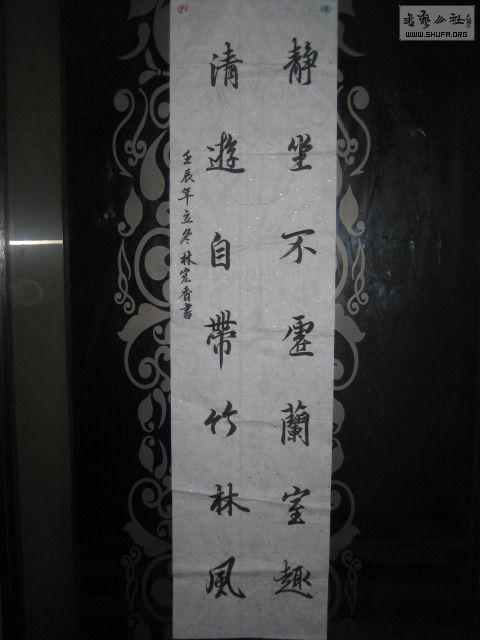 静坐不虚蘭室趣
清遊自帶竹林風
壬辰年立冬林宏香書
书艺公社
WWW.SHUFA.ORG